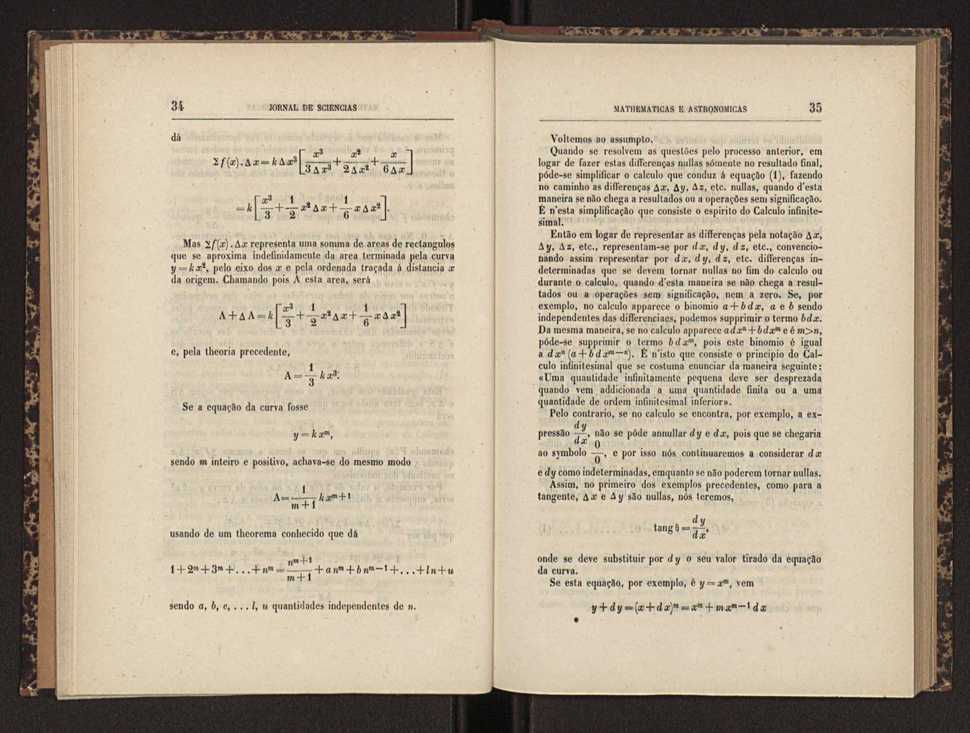 34 JORNAL DE SCIENCIAS
dá
Σf(x).Δx=kΔx³[x³/3Δx³+x²/2Δx²+x/6Δx]
=k[x³/3+1/2 x²Δx+1/6 xΔx²].
Mas Σf(x).Δx representa uma somma de areas de rectangulos
que se aproxima indefinidamente da area terminada pela curva
y=kx², pelo eixo dos x e pela ordenada traçada á distancia x
da origem. Chamando pois A esta area, será
A+ΔA=k[x³/3+1/2 x²Δx+1/6 xΔx²]
e, pela theoria precedente,
A=1/3 kx³.
Se a equação da curva fosse
y=kxᵐ,
sendo m inteiro e positivo, achava-se do mesmo modo
A=1/(m+1) kxᵐ⁺¹
usando de um theorema conhecido que dá
1+2ᵐ+3ᵐ+...+nᵐ=nᵐ⁺¹/(m+1)+anᵐ+bnᵐ⁻¹+...+ln+u
sendo a, b, c, ... l, u quantidades independentes de n.
MATHEMATICAS E ASTRONOMICAS 35
Voltemos ao assumpto.
Quando se resolvem as questões pelo processo anterior, em
logar de fazer estas differenças nullas sómente no resultado final,
póde-se simplificar o calculo que conduz á equação (1), fazendo
no caminho as differenças Δx, Δy, Δz, etc. nullas, quando d'esta
maneira se não chega a resultados ou a operações sem significação.
É n'esta simplificação que consiste o espirito do Calculo infinite-
simal.
Então em logar de representar as differenças pela notação Δx,
Δy, Δz, etc., representam-se por dx, dy, dz, etc., convencio-
nando assim representar por dx, dy, dz, etc. differenças in-
determinadas que se devem tornar nullas no fim do calculo ou
durante o calculo, quando d'esta maneira se não chega a resul-
tados ou a operações sem significação, nem a zero. Se, por
exemplo, no calculo apparece o binomio a+bdx, a e b sendo
independentes das differenciaes, podemos supprimir o termo bdx.
Da mesma maneira, se no calculo apparece adxⁿ+bdxᵐ e é m>n,
póde-se supprimir o termo bdxᵐ, pois este binomio é igual
a dxⁿ(a+bdxᵐ⁻ⁿ). É n'isto que consiste o principio do Cal-
culo infinitesimal que se costuma enunciar da maneira seguinte:
«Uma quantidade infinitamente pequena deve ser desprezada
quando vem addicionada a uma quantidade finita ou a uma
quantidade de ordem infinitesimal inferior».
Pelo contrario, se no calculo se encontra, por exemplo, a ex-
pressão dy/dx, não se póde annullar dy e dx, pois que se chegaria
ao symbolo 0/0, e por isso nós continuaremos a considerar dx
e dy como indeterminadas, emquanto se não poderem tornar nullas.
Assim, no primeiro dos exemplos precedentes, como para a
tangente, Δx e Δy são nullas, nós teremos,
tang θ=dy/dx,
onde se deve substituir por dy o seu valor tirado da equação
da curva.
Se esta equação, por exemplo, é y=xᵐ, vem
y+dy=(x+dx)ᵐ=xᵐ+mxᵐ⁻¹dx